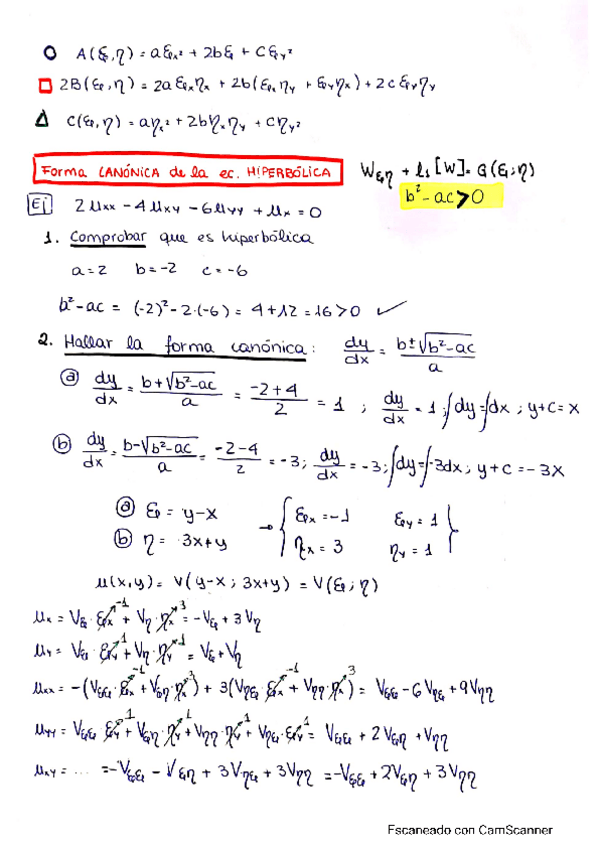 A(ξ,η) = aξx² + 2bξ + Cξy²
2B(ξ,η) = 2aξxηx + 2b(ξxηy + ξyηx) + 2cξyηy
C(ξ,η) = aηx² + 2bηxηy + cηy²
Forma CANÓNICA de la ec. HIPERBÓLICA
Wξη + l1[W] = G(ξ;η)
b² - ac > 0
Ej 2uxx - 4uxy - 6uyy + ux = 0
1. Comprobar que es hiperbólica
a = 2 b = -2 c = -6
b² - ac = (-2)² - 2·(-6) = 4 + 12 = 16 > 0 ✓
2. Hallar la forma canónica: dy/dx = b±√b²-ac / a
ⓐ dy/dx = b+√b²-ac / a = -2+4 / 2 = 1 ; dy/dx = 1 ; ∫dy = ∫dx ; y+c = x
ⓑ dy/dx = b-√b²-ac / a = -2-4 / 2 = -3 ; dy/dx = -3 ; ∫dy = ∫-3dx ; y+c = -3x
ⓐ ξ = y-x → { ξx = -1 ξy = 1 }
ⓑ η = 3x+y { ηx = 3 ηy = 1 }
u(x,y) = V(y-x ; 3x+y) = V(ξ;η)
ux = Vξ·ξx + Vη·ηx = -Vξ + 3Vη
uy = Vξ·ξy + Vη·ηy = Vξ + Vη
uxx = -(Vξξ·ξx + Vξη·ηx) + 3(Vηξ·ξx + Vηη·ηx) = Vξξ - 6Vηξ + 9Vηη
uyy = Vξξ·ξy + Vξη·ηy + Vηη·ηy + Vηξ·ξy = Vξξ + 2Vξη + Vηη
uxy = ... = -Vξξ - Vξη + 3Vηξ + 3Vηη = -Vξξ + 2Vξη + 3Vηη
Escaneado con CamScanner